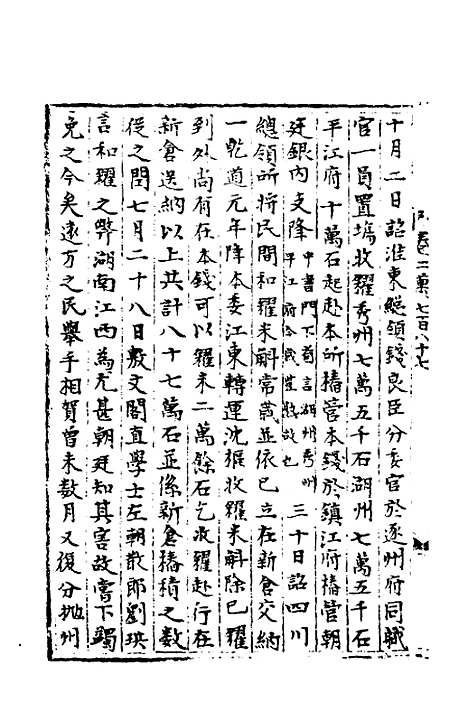 十月二日詔淮東總領錢良臣分委官於逐州府同職
官一員置場收糴秀州七萬五千石湖州七萬五千石
平江府十萬石起赴本所樁管本錢於鎮江府樁管朝
廷銀內支降中書門下省言湖州秀州平江府今歲豐熟故也三十日詔四川
總領所將民間和糴米斛常歲並依已立在新倉交納
一乾道元年降本委江東轉運沈樞收糴米斛除已糴
到外尚有在本錢可以糴米二萬餘石乞收糴赴行在
新倉送納以上共計八十七萬石並係新倉樁積之數
從之閏七月二十八日敷文閣直學士左朝散郎劉珙
言和糴之弊湖南江西為尤甚朝廷知其害故嘗下蠲
免之令矣遠方之民舉手相賀曾未數月又復分拋州
二萬七百八十七